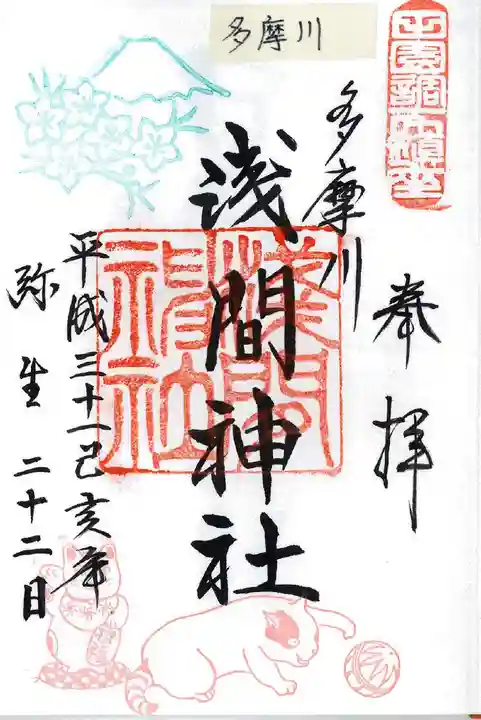 多摩川
奉拝
多摩川
浅間神社
平成三十一己亥年
弥生二十二日
浅間神社